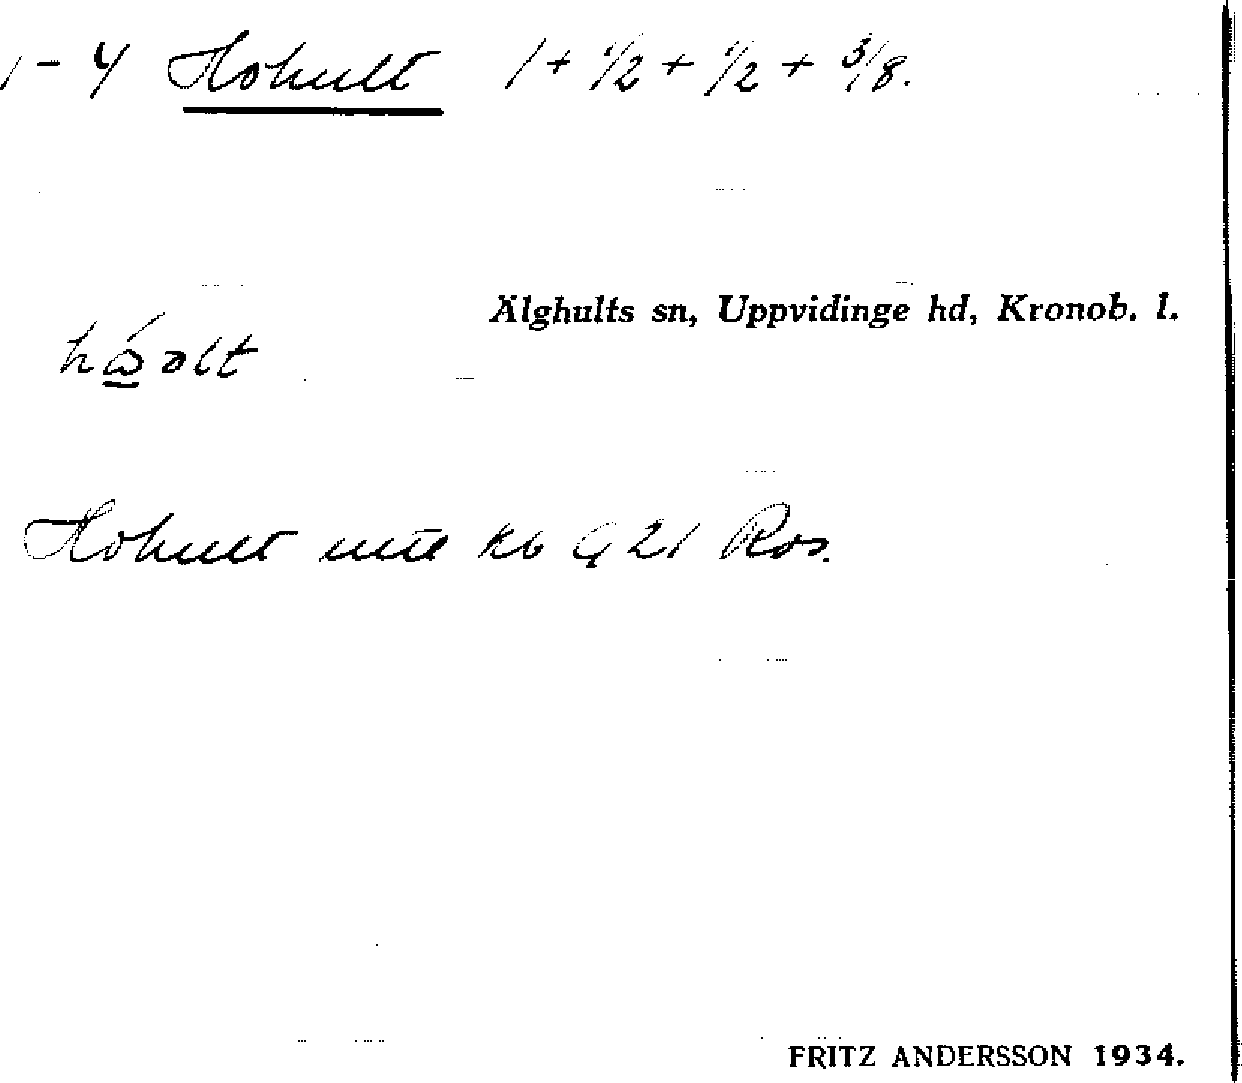 1-4 Hohult 1 + 1/2 + 1/2 + 3/8.
Älghults sn, Uppvidinge hd, Kronob. l.
Hohult kb 921 Ros.
FRITZ ANDERSSON 1934.